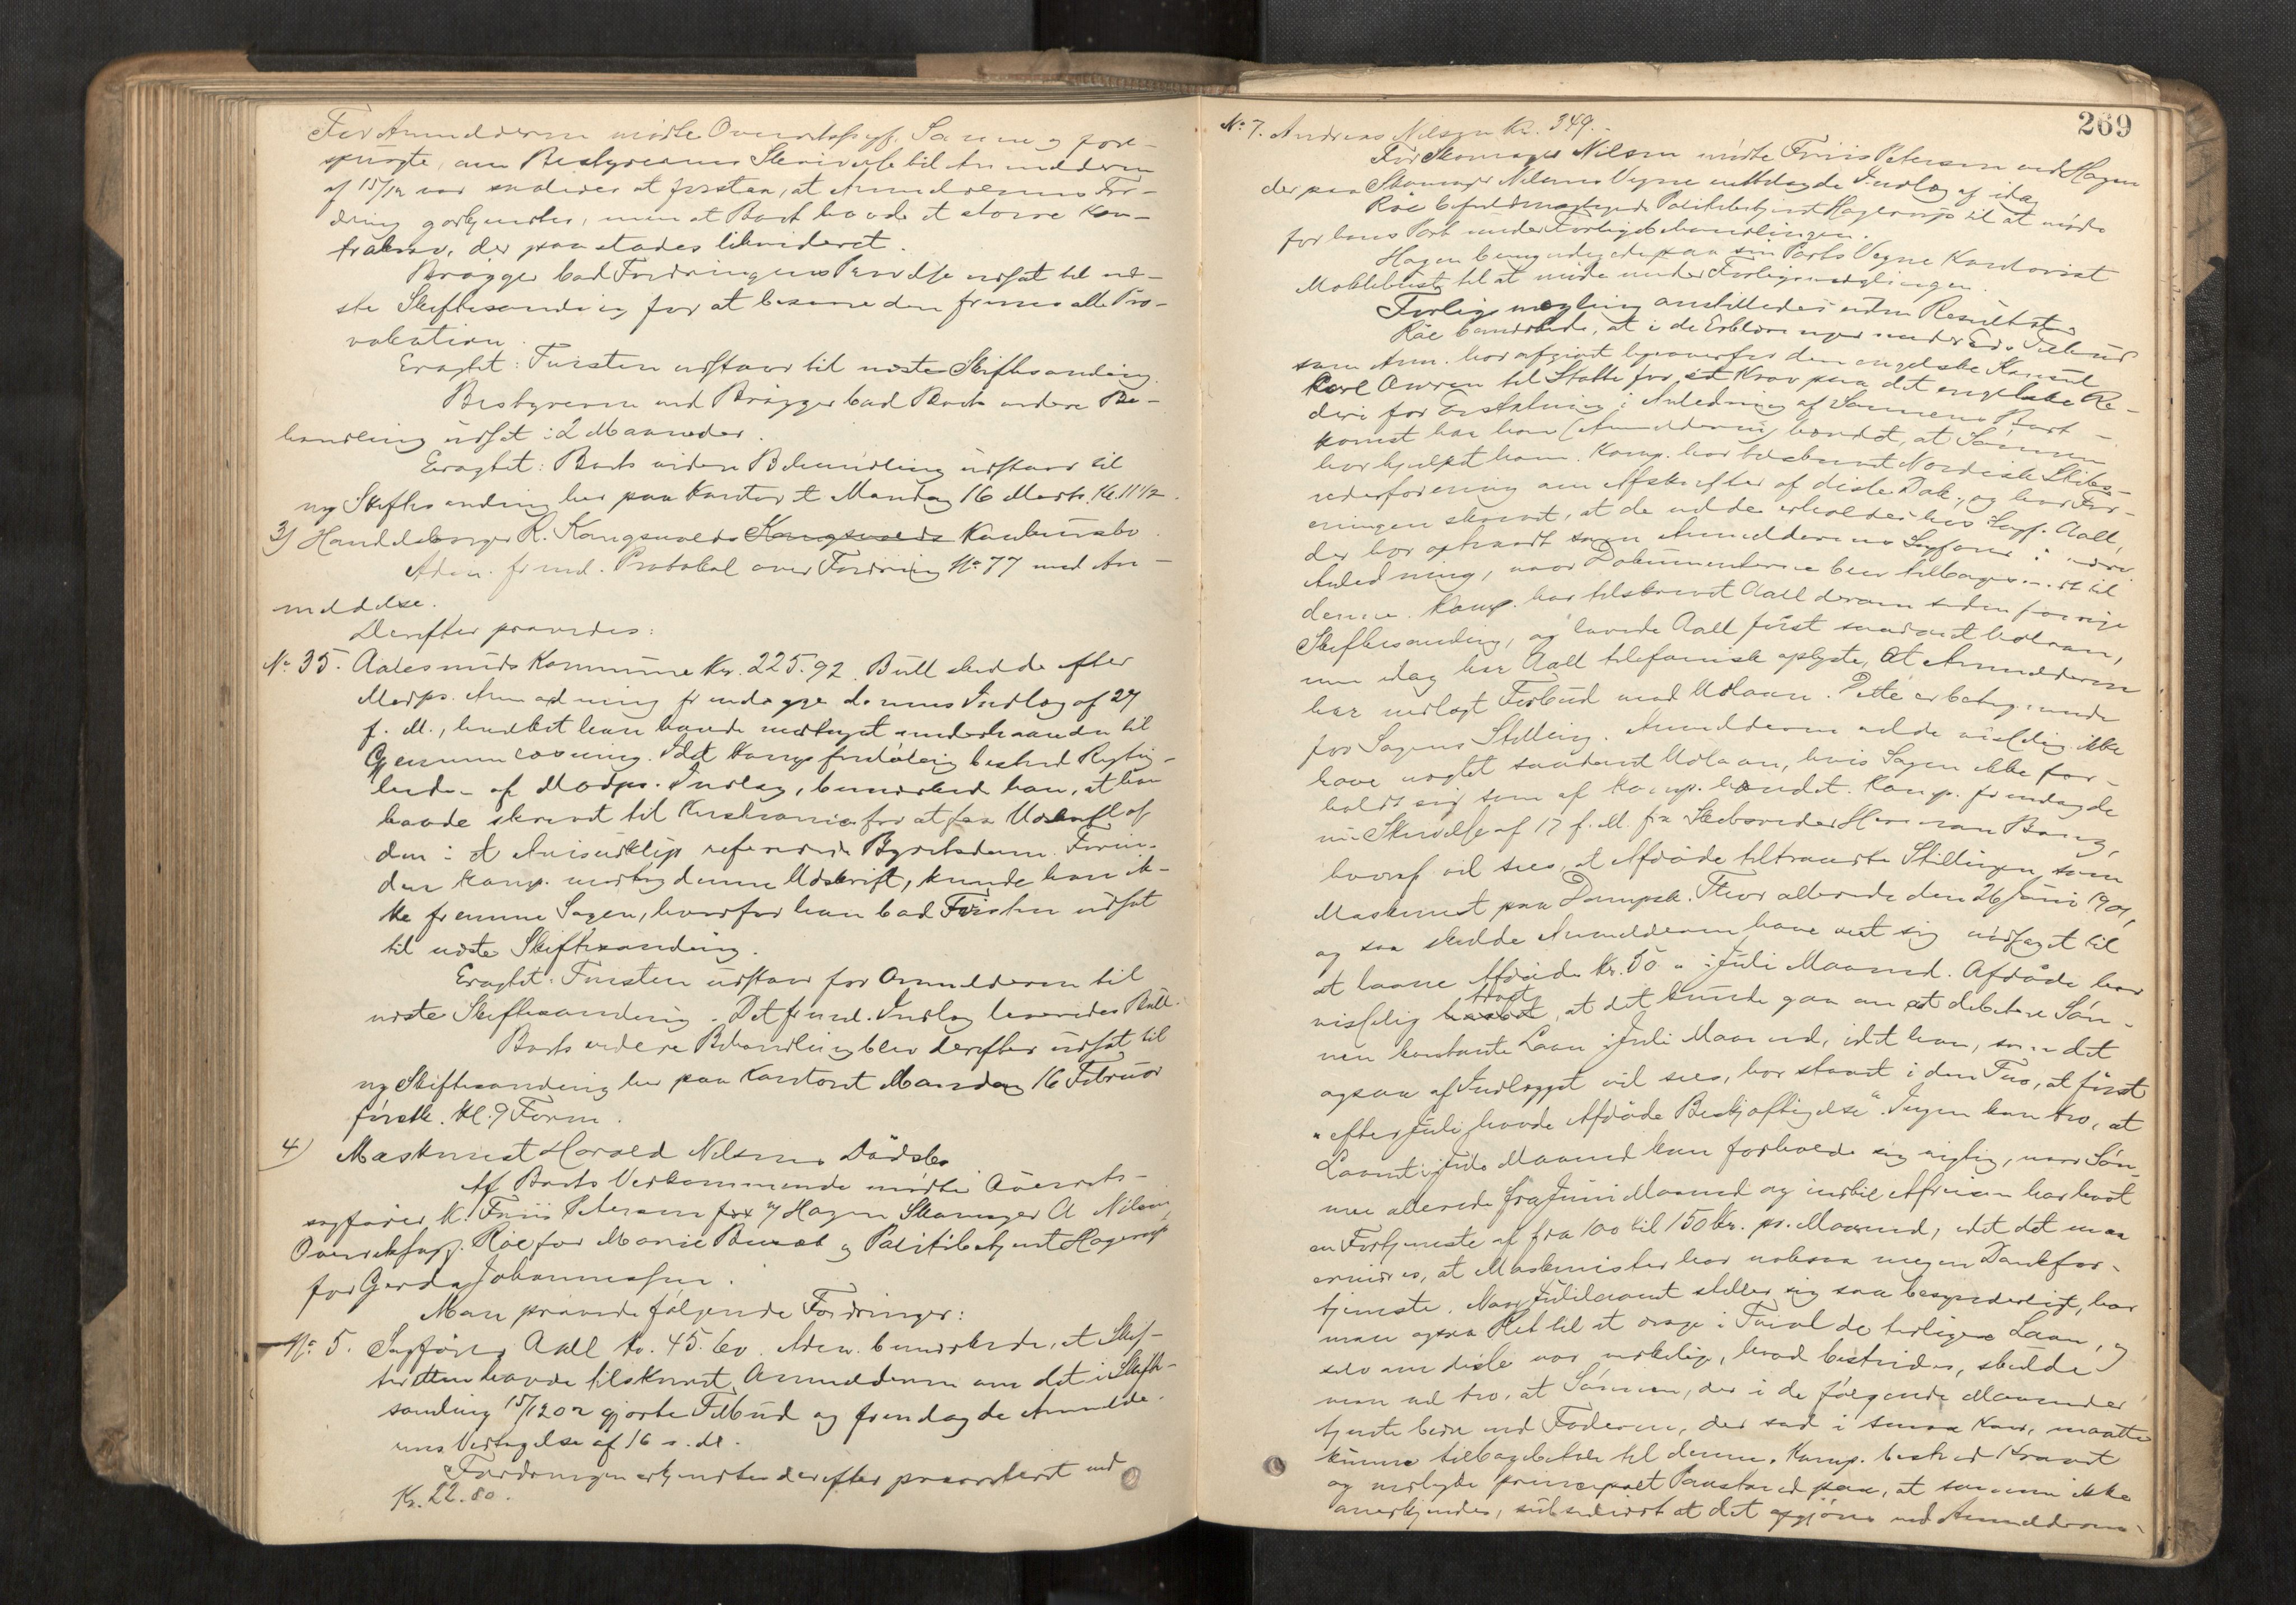 For Anmelderen mødte Overretssagf. Sa
spurgte, om Bestyrerens Skrivelse til Anmelderen
af 15/12 var saaledes at forstaa, at Anmelderens For-
dring godkjendtes, men at Boet havde et større Kon-
trakrav, der paastodes likvideret.
Brøgger bad Fordringens Prøvelse udsat til næ-
ste Skiftesamling for at besvare den fremsatte Pro-
vokation.
Eragtet: Tvisten udstaar til næste Skiftesamling.
Bestyreren ved Brøgger bad Boets videre Be-
handling udsat i 2 Maaneder.
Eragtet: Boets videre Behandling udstaar til
ny Skiftesamling her paa Kontoret Mandag 16 Marts Kl. 11 1/2.
3) Handelsborger R. Kongsvolds Kongsvolds Konkursbo
Adm. freml. Protokol over Fordring No 77 med An-
meldelse.
Derefter prøvedes:
No 35. Aalesunds Kommune Kr. 225.92. Bull skulde efter
Modps. Anmodning fremlægge dennes Indlæg af 27
f. M., hvilket han havde modtaget underhaanden til
Gjennemlæsning. Idet Komp. foreløbig bestred Rigtig-
heden af Modps. Indlæg, bemærkede han, at han
havde skrevet til Kristiania for at faa Udskrift af
den i et Avisudklip refererede Byretsdom. Forin-
den Komp. modtog denne Udskrift, kunde han ik-
ke fremme Sagen, hvorfor han bad Tvisten udsat
til næste Skiftesamling.
Eragtet: Tvisten udstaar for Anmelderen til
næste Skiftesamling. Det freml. Indlæg leveredes Bull.
Boets videre Behandling blev derefter udsat til
ny Skiftesamling her paa Kontoret Mandag 16 Februar
førstk. Kl. 9 Form.
4) Maskinist Harald Nilsens Dødsbo
Af Boets Vedkommende mødte Overrets-
sagfører K. Friis Petersen for og Hagen Skomager A Nilsen,
Overretssagf. Röe for Marie og Politibetjent Hagerup
for Gerda Johannessen.
Man prøvede følgende Fordringer:
No 5. Sagfører Aall Kr. 45.60. Adm. bemærkede, at Skif-
teretten havde tilskrevet Anmelderen om det i Skifte-
samling 15/12 02 gjorte Tilbud og fremlagde Anmelde-
rens Vedtagelse af 16 s. M.
Fordringen erkjendtes derefter med
Kr. 22.80.
269
No 7. Andreas Nilsen Kr. 349.-
For Skomager Nilsen mødte Friis Petersen ved Hagen
der paa Skomager Nilsens Vegne fremlagde Indlæg af idag
Röe befuldmægtigede Politibetjent Hagerup til at møde
for hans Part under Forligsbehandlingen.
Hagen bemyndigede paa sin Parts Vegne Kontorist
til at møde under Forligsmæglingen.
Forligsmægling anstilledes uden Resultat.
Röe bemærkede, at i de Erklæringer under Eds Tilbud
som Anm. har afgivet ligeoverfor den engelske Konsul
Carl Owren til Støtte for sit Krav paa det engelske Re-
deri for Erstatning i Anledning af Sønnens Bort-
komst har han (Anmelderen) benægtet, at Sønnen
har hjulpet ham. Komp. har tilskrevet Nordisk Skibs-
rederforening om Afskrifter af disse Dok., og har For-
eningen skrevet, at de vilde erholdes hos Sagf. Aall,
der har optraadt som Anmelderens Sagfører i
Anledning, naar Dokumenterne blev tilbage til
denne. Komp. har tilskrevet Aall derom siden forrige
Skiftesamling, og lovede Aall først saadant Udlaan,
men idag har Aall telefonisk oplyst, at Anmelderen
har nedlagt Forbud mod Udlaan. Dette er betegnende
for Sagens Stilling. Anmelderen vilde visselig ikke
have nægtet saadant Udlaan, hvis Sagen ikke for-
holdt sig som af Komp. hævdet. Komp. fremlagde
nu Skrivelse af 17 f. M. fra Skibsreder Herman Bang,
hvoraf vil sees, at Afdøde tiltraadte Stillingen som
Maskinist paa Dampsk. Thor allerede den 26 Juni 1901,
og saa skulde Anmelderen have set sig nødsaget til
at laane Afdøde Kr. 50 „ i Juli Maaned. Afdøde har
visselig troet, at det kunde gaa an at debitere Søn-
nen kontante Laan i Juli Maaned, idet han, som det
ogsaa af Indlægget vil sees, har staaet i den Tro, at først
„efter Juli havde Afdøde Beskjæftigelse“. Ingen kan tro, at
Laanet i Juli Maaned kan forholde sig rigtig, naar Søn-
nen allerede fra Juni Maaned og indtil Afreisen har havt
en Fortjeneste af fra 100 til 150 Kr. pr. Maaned, idet det maa
erindres, at Maskinister har nokså megen
tjeneste. Naar Julilaanet stiller sig saa besynderligt, har
man ogsaa Ret til at drage i Tvivl de tidligere Laan, og
selv om disse var virkelige, hvad bestrides, skulde
man vel tro, at Sønnen, der i de følgende Maaneder
tjente bedre end Faderen, der sad i smaa Kaar, maatte
kunne tilbagebetale til denne. Komp. bestred Kravet
og nedlagde principalt Paastand paa, at samme ikke
anerkjendes, subsidiært at det afgjøres ved Anmelderens